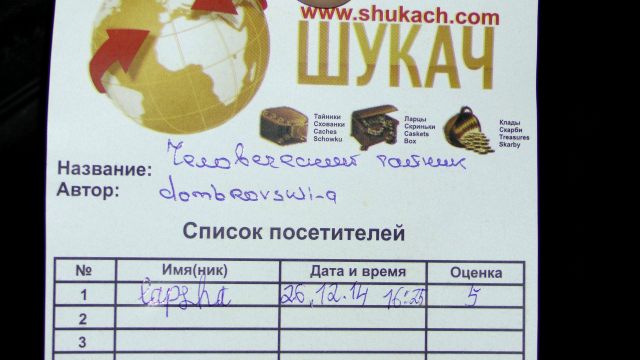 www.shukach.com
ШУКАЧ
Тайники
Схованки
Caches
Schowku
Ларцы
Скриньки
Caskets
Box
Клады
Скарби
Treasures
Skarby
Название: Человеческий тайник
Автор: dombrovswi-a
Список посетителей
№ Имя(ник) Дата и время Оценка
1 Lapsha 26.12.14 16:25 5
2
3